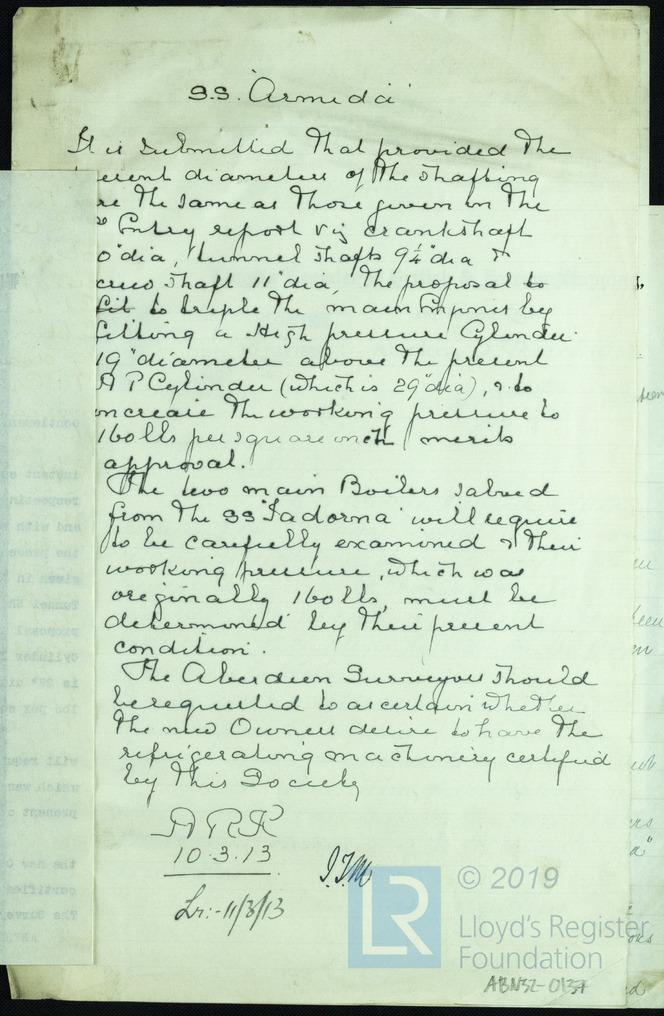 S.S. "Armeda"
It is submitted that provided the
present diameters of the shafting
are the same as those given in the
1st Entry report viz crankshaft
10" dia, tunnel shafts 9¼" dia &
screw shaft 11" dia, the proposal to
fit to triple the main Engines by
fitting a High pressure Cylinder
19" diameter above the present
H P Cylinder (which is 29" dia), & to
increase the working pressure to
160 lbs per square inch merits
approval.
The two main Boilers salved
from the SS "Tadorna" will require
to be carefully examined & their
working pressure, which was
originally 160 lbs, must be
determined by their present
condition.
The Aberdeen Surveyors should
be requested to ascertain whether
the new Owners desire to have the
refrigerating machinery certified
by this Society
10.3.13
J.T.M
Lr:- 11/3/13
© 2019
LR
Lloyd's Register
Foundation
ABN32-0137